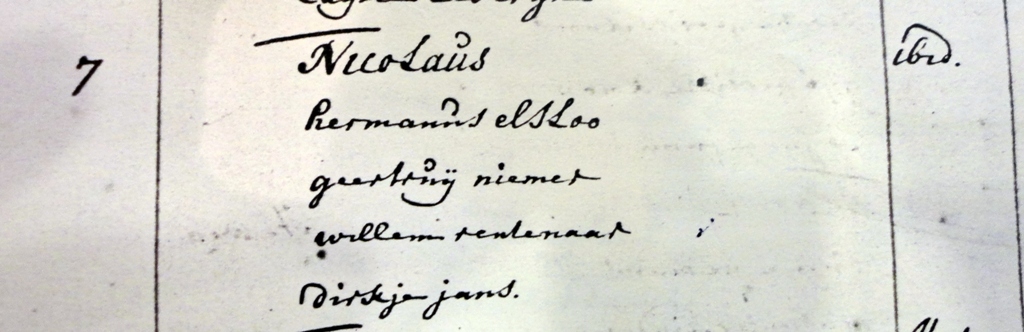 7 Nicolaus ibid.
hermanus elsloo
geertruij niemer
willem rentenaar
dirkje jans.